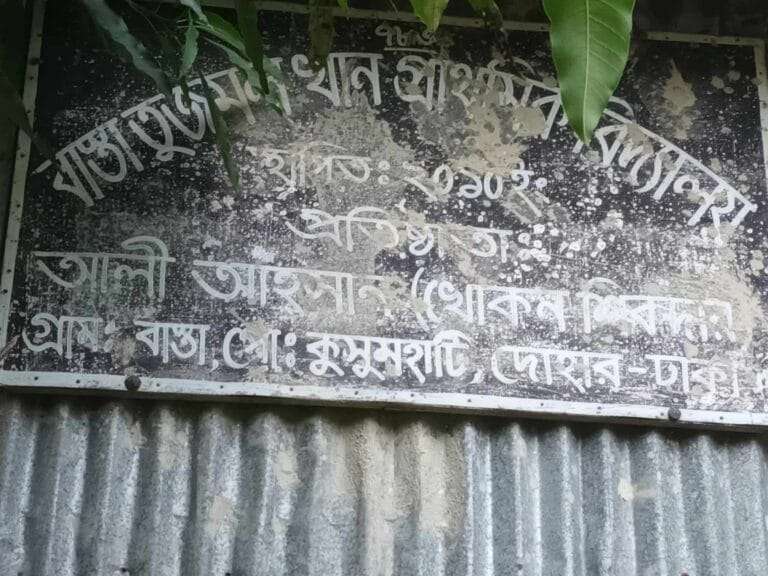 বাস্তা তুজমল খান প্রাথমিক বিদ্যালয়
স্থাপিত: ২০১০ইং
প্রতিষ্ঠাতাঃ
আলী আহসান (খোকন শিকদার)
গ্রাম: বাস্তা, পো: কুসুমহাটি, দোহার -ঢাকা